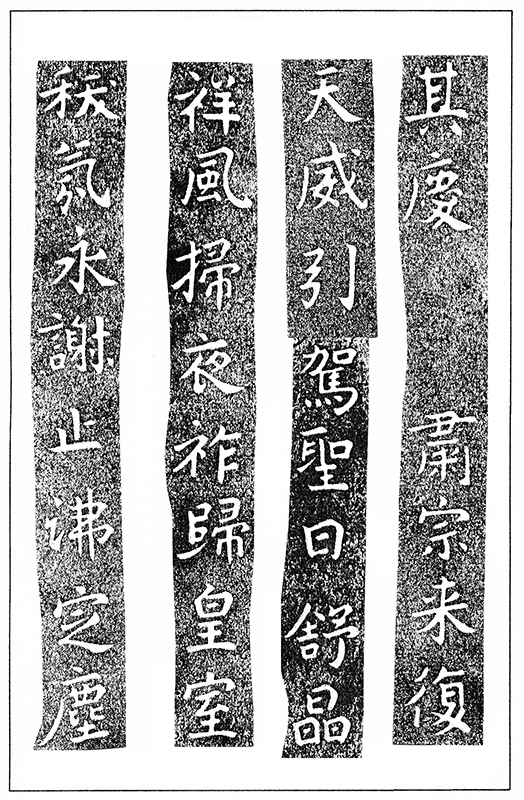 其慶 肅宗来復
天威引駕聖日舒晶
祥風掃夜祚歸皇室
祅氛永謝止沸㝎塵